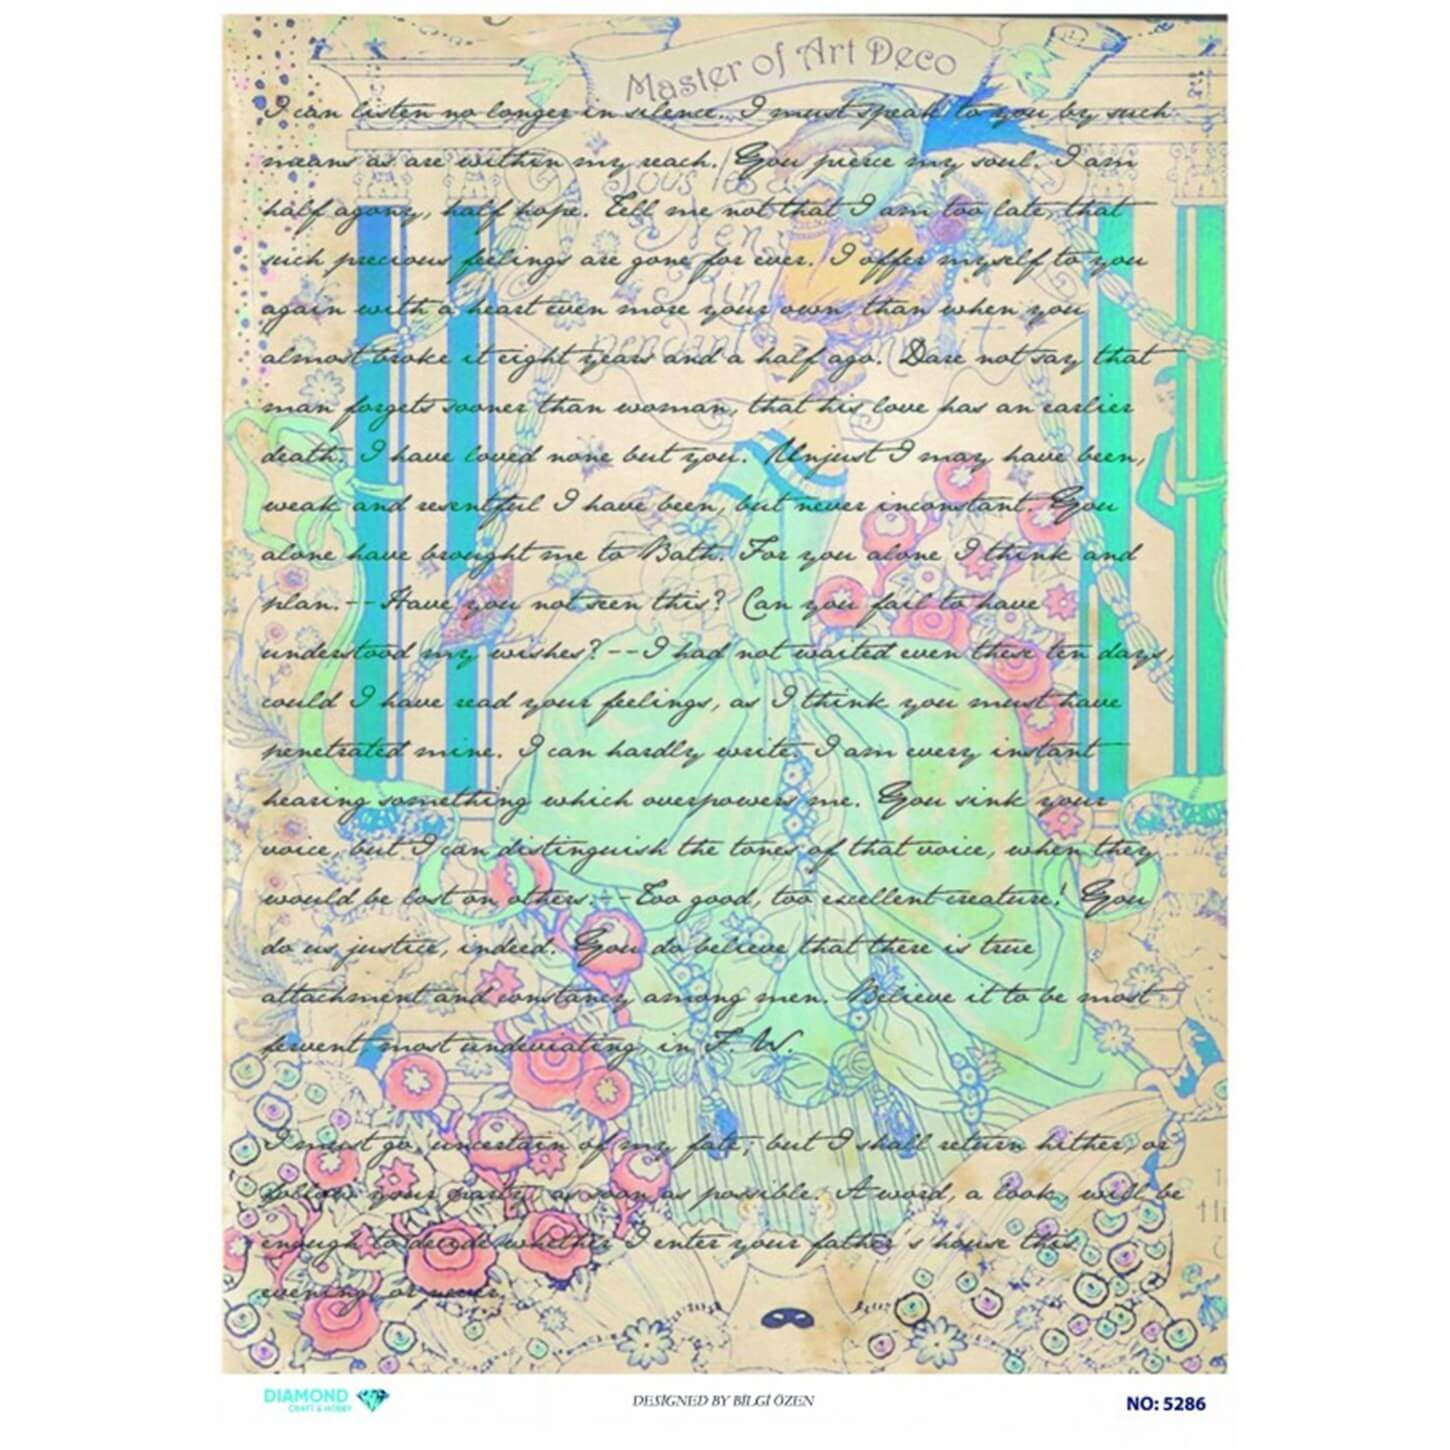 Master of Art Deco
I can listen no longer in silence. I must speak to you by such
means as are within my reach. You pierce my soul. I am
half agony, half hope. Tell me not that I am too late, that
such precious feelings are gone for ever. I offer myself to you
again with a heart even more your own, than when you
almost broke it eight years and a half ago. Dare not say that
man forgets sooner than woman, that his love has an earlier
death. I have loved none but you. Unjust I may have been,
weak and resentful I have been, but never inconstant. You
alone have brought me to Bath. For you alone I think and
plan.--Have you not seen this? Can you fail to have
understood my wishes?--I had not waited even these ten days,
could I have read your feelings, as I think you must have
penetrated mine. I can hardly write. I am every instant
hearing something which overpowers me. You sink your
voice, but I can distinguish the tones of that voice, when they
would be lost on others.--Too good, too excellent creature! You
do us justice, indeed. You do believe that there is true
attachment and constancy among men. Believe it to be most
fervent, most undeviating, in F. W.
I must go, uncertain of my fate; but I shall return hither, or
follow your party, as soon as possible. A word, a look, will be
enough to decide whether I enter your father's house this
evening, or never.
DIAMOND
CRAFT & HOBBY
DESIGNED BY BİLGİ ÖZEN
NO: 5286